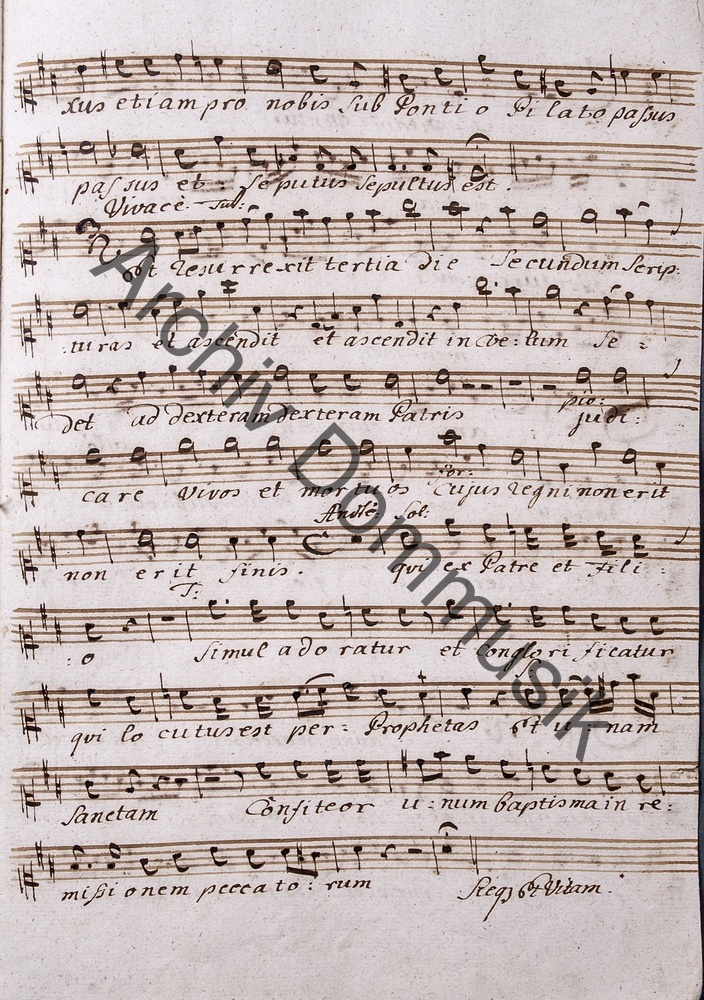 xus etiam pro nobis sub Ponti o Pi lato passus
passus et : se putus sepultus est .
Vivace. Tut:
Et Resurrexit tertia die secundum Scrip:
:turas et ascendit et ascendit in Coe: lum se :
det ad dexteram dexteram Patris judi:
pia:
care vivos et mortuos Cujus regni non erit
for:
Andte: Sol:
non erit finis . qui ex Patre et Fili :
T:
: o simul adoratur et Conglorificatur
qui locutus est per: Prophetas Et u nam
Sanctam Confiteor u: num baptisma in re:
mißionem peccato: rum Seq: Et Vitam .
Archiv Dommusik